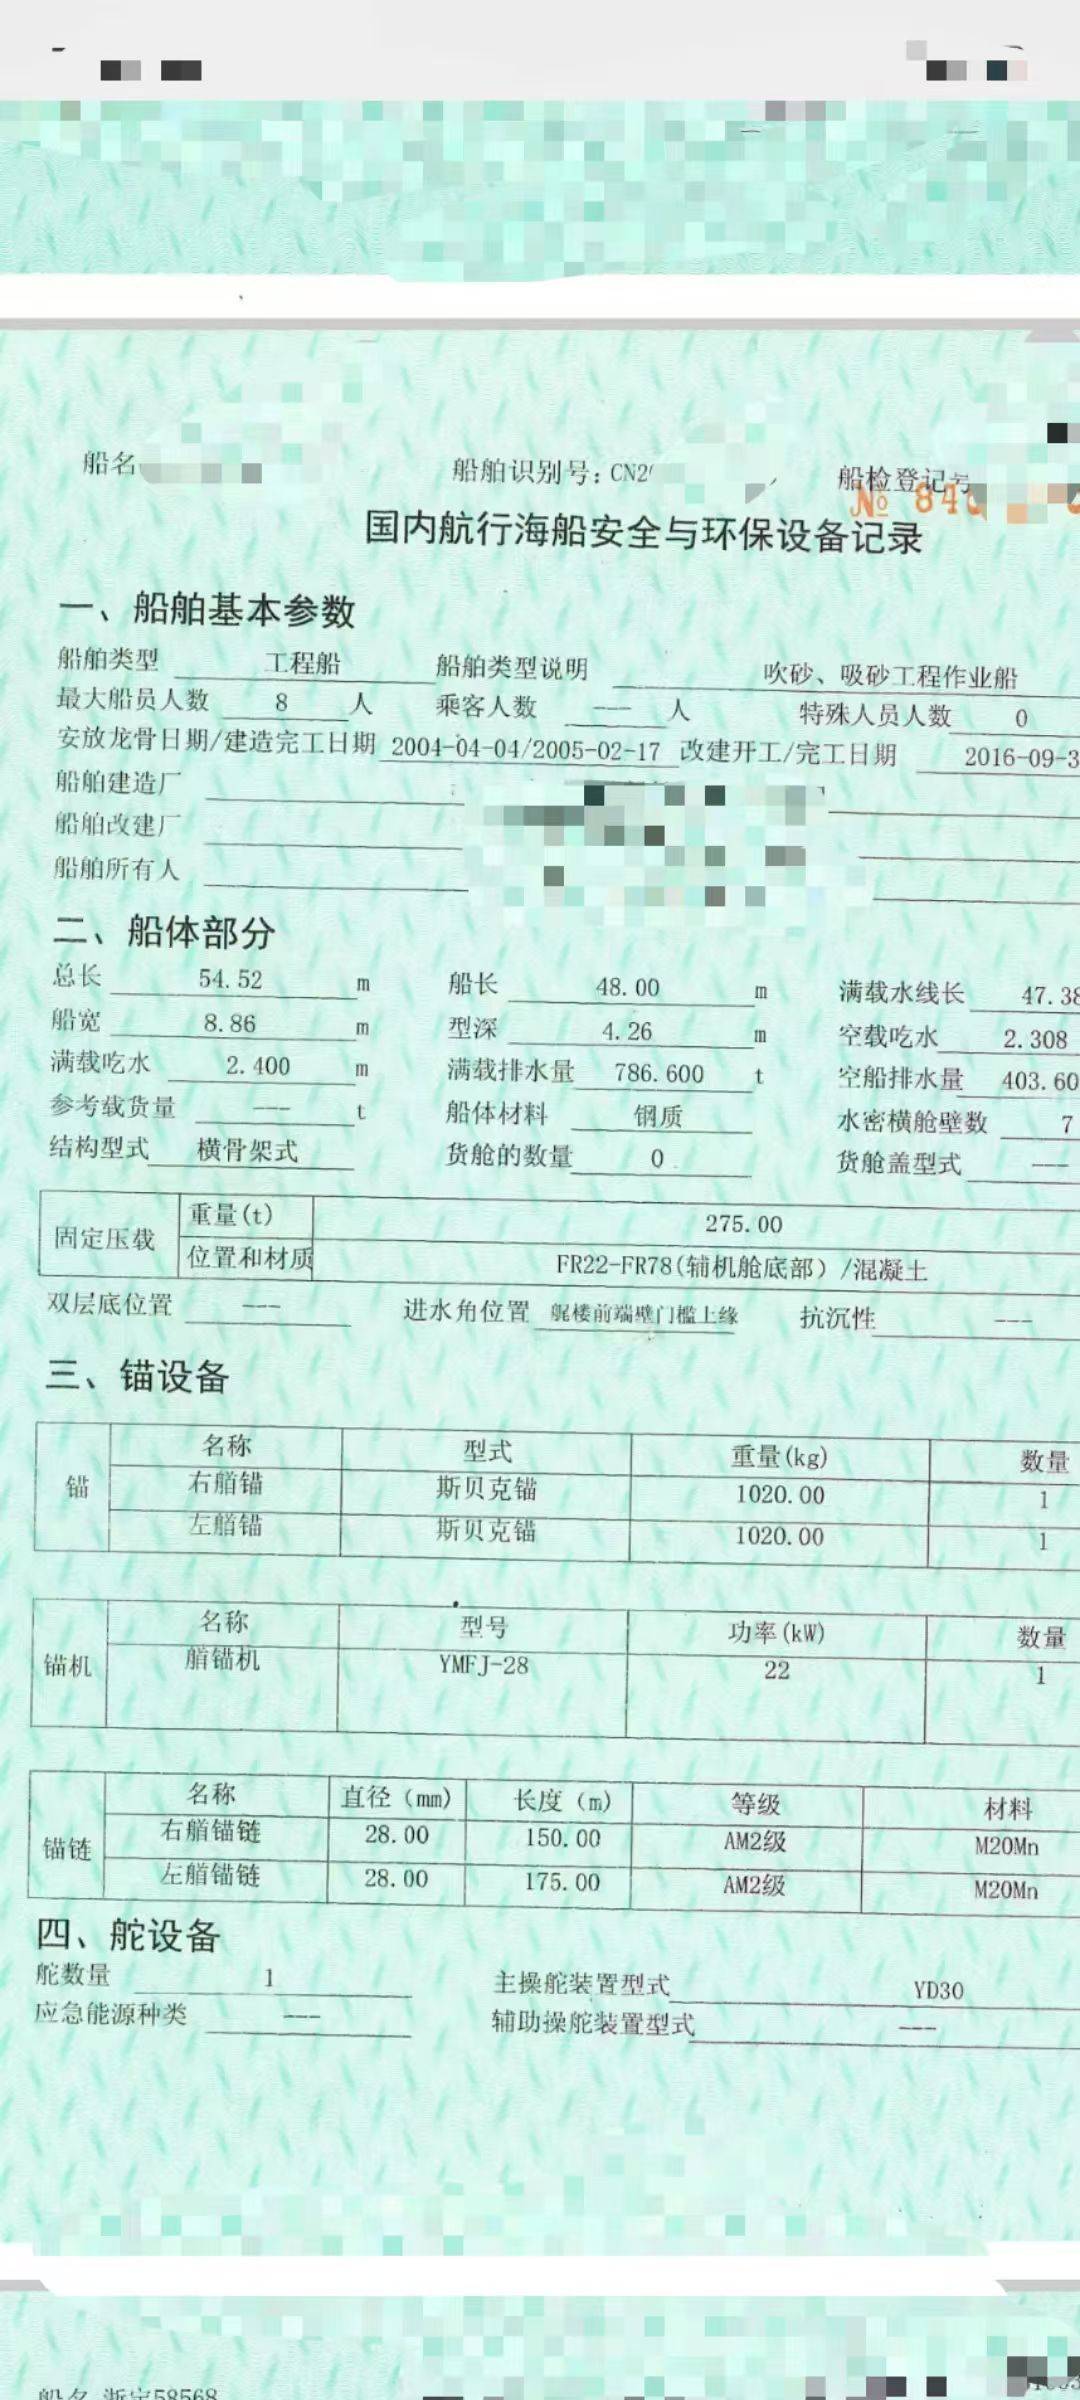 船名 船舶识别号：CN2 船检登记号
№ 840
国内航行海船安全与环保设备记录
一、船舶基本参数
船舶类型 工程船 船舶类型说明 吹砂、吸砂工程作业船
最大船员人数 8 人 乘客人数 --- 人 特殊人员人数 0
安放龙骨日期/建造完工日期 2004-04-04/2005-02-17 改建开工/完工日期 2016-09-3
船舶建造厂
船舶改建厂
船舶所有人
二、船体部分
总长 54.52 m 船长 48.00 m 满载水线长 47.38
船宽 8.86 m 型深 4.26 m 空载吃水 2.308
满载吃水 2.400 m 满载排水量 786.600 t 空船排水量 403.60
参考载货量 --- t 船体材料 钢质 水密横舱壁数 7
结构型式 横骨架式 货舱的数量 0 货舱盖型式 ---
固定压载 重量(t) 275.00
位置和材质 FR22-FR78(辅机舱底部）/混凝土
双层底位置 --- 进水角位置 艉楼前端壁门槛上缘 抗沉性 ---
三、锚设备
锚 名称 型式 重量(kg) 数量
右艏锚 斯贝克锚 1020.00 1
左艏锚 斯贝克锚 1020.00 1
锚机 名称 型号 功率(kW) 数量
艏锚机 YMFJ-28 22 1
锚链 名称 直径（mm） 长度（m） 等级 材料
右艏锚链 28.00 150.00 AM2级 M20Mn
左艏锚链 28.00 175.00 AM2级 M20Mn
四、舵设备
舵数量 1 主操舵装置型式 YD30
应急能源种类 --- 辅助操舵装置型式 ---
船名 浙定58568